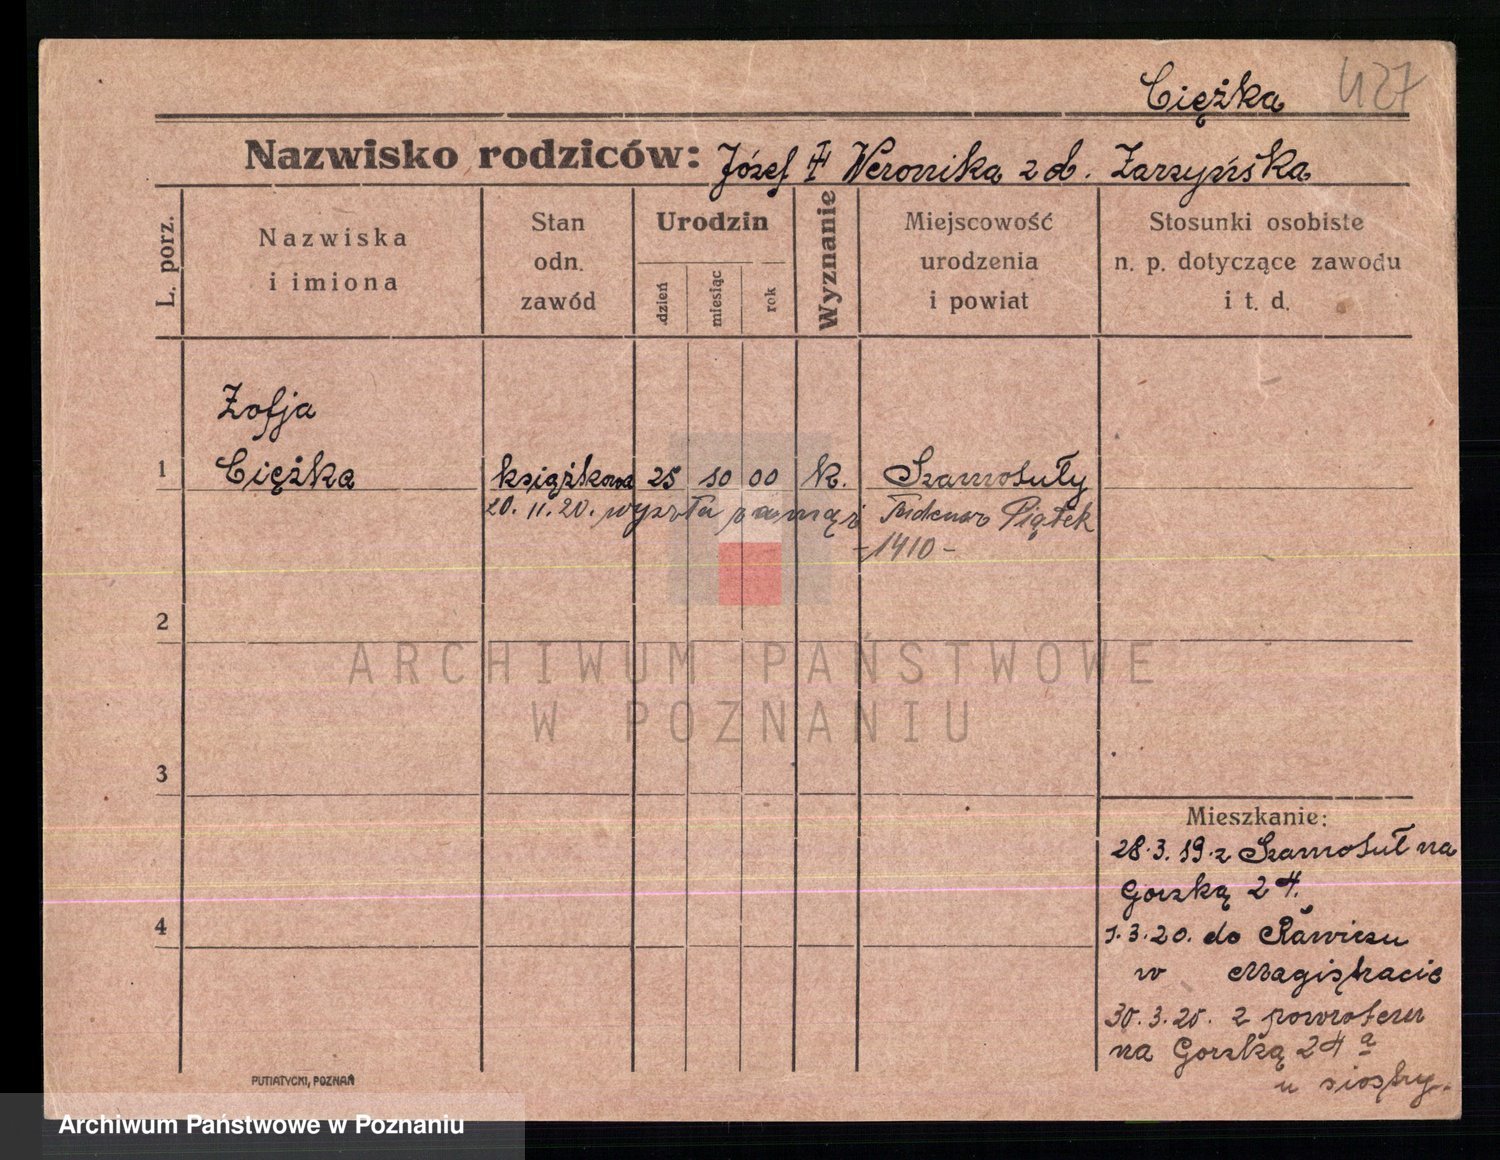 Ciężka 427
Nazwisko rodziców: Józef Weronika z d. Zarzyńska
L. porz.
Nazwiska
i imiona
Stan
odn.
zawód
Urodzin
dzień
miesiąc
rok
Wyznanie
Miejscowość
urodzenia
i powiat
Stosunki osobiste
n. p. dotyczące zawodu
i t. d.
Zofja
1 Ciężka książkowa 25 10 00 k. Szamotuły
20. 11. 20. wyszła zamąż Tadeusz Piątek
-1410-
2
ARCHIWUM PAŃSTWOWE
W POZNANIU
3
Mieszkanie:
28.3.19 z Szamotuł na
Gorzką 2
4
1.3.20. do Rawicza
w Magistracie
30.3.20. z powrotem
na Gorzką 2
u siostry.
PUTIATYCKI, POZNAŃ
Archiwum Państwowe w Poznaniu